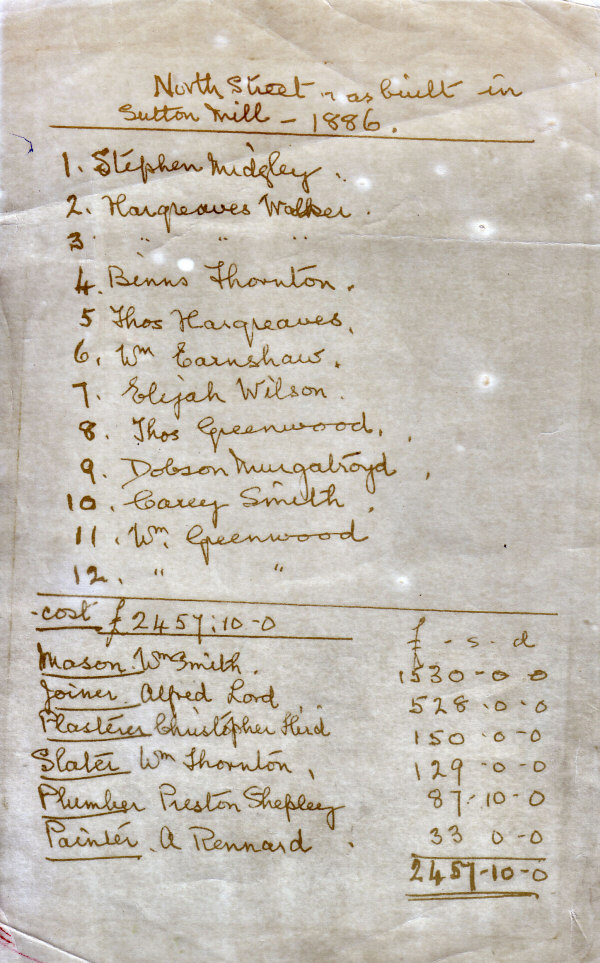 North Street as built in
Sutton Mill - 1886.
1. Stephen Midgley.
2. Hargreaves Walker.
3 " " "
4. Binns Thornton.
5 Thos Hargreaves.
6. Wm Earnshaw.
7. Elijah Wilson.
8. Thos Greenwood.
9. Dobson Murgatroyd
10. Carey Smith.
11. Wm. Greenwood
12. " "
cost £2457:10-0
£ - s - d
Mason Wm Smith. 1530-0-0
Joiner Alfred Lord 528-0-0
Plasterer Christopher Herd 150-0-0
Slater Wm Thornton, 129-0-0
Plumber Preston Shepley 87-10-0
Painter. A Rennard. 33 0-0
2457-10-0